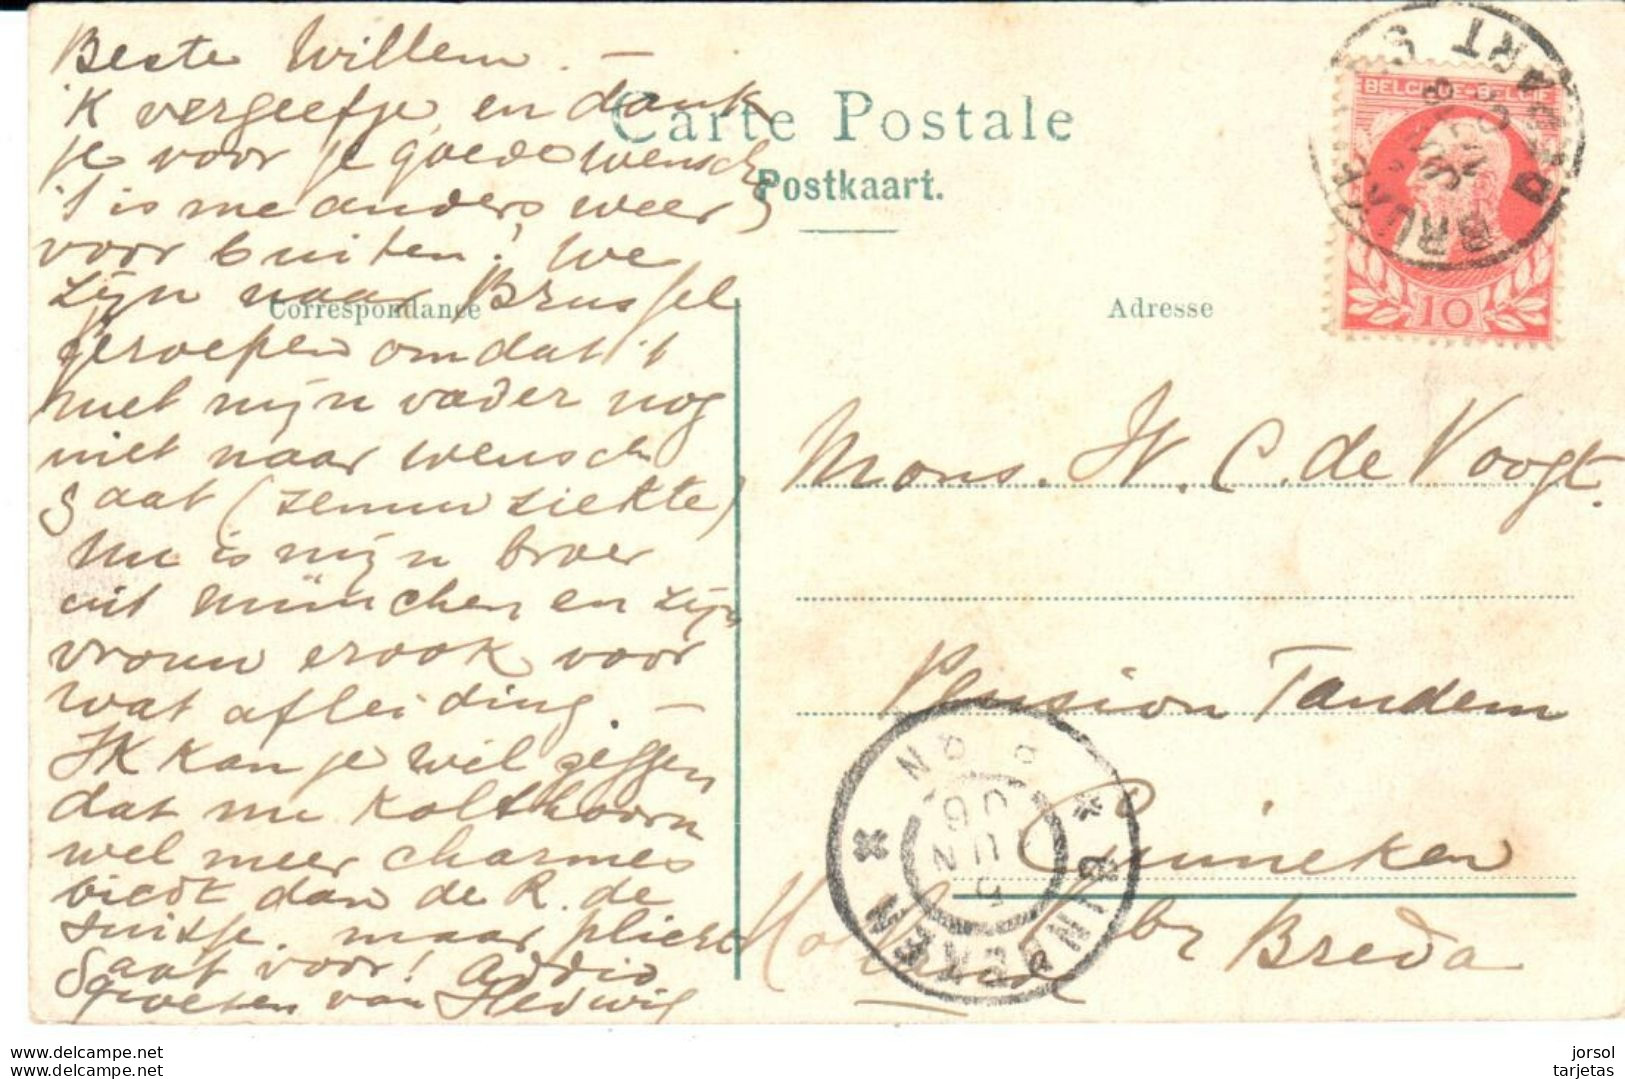 Beste Willem. —
'K vergeef je, en dank
je voor je goede wensch,
't is me anders weer
voor buiten! We
zijn naar Brussel
geroepen omdat 't
met mijn vader nog
niet naar wensch
gaat (zenuwziekte)
Nu is mijn broer
uit München en zijn
vrouw er ook voor
wat afleiding. —
Ik kan je wel zeggen
dat me Kalthoorn
wel meer charmes
biedt dan de R. de
Suisse. maar plicht
gaat voor! Addio
groeten van Hedwig
Carte Postale
Postkaart.
Correspondance
Adresse
BELGIQUE-BELGIË
10
BRUXELLES
DEPART
Mons. W. C. de Voogt.
Pension Tandem
Ginneken
br Breda
Holland
GINNEKEN
5 JUN 06
www.delcampe.net
www.delcampe.net
jorsol
tarjetas